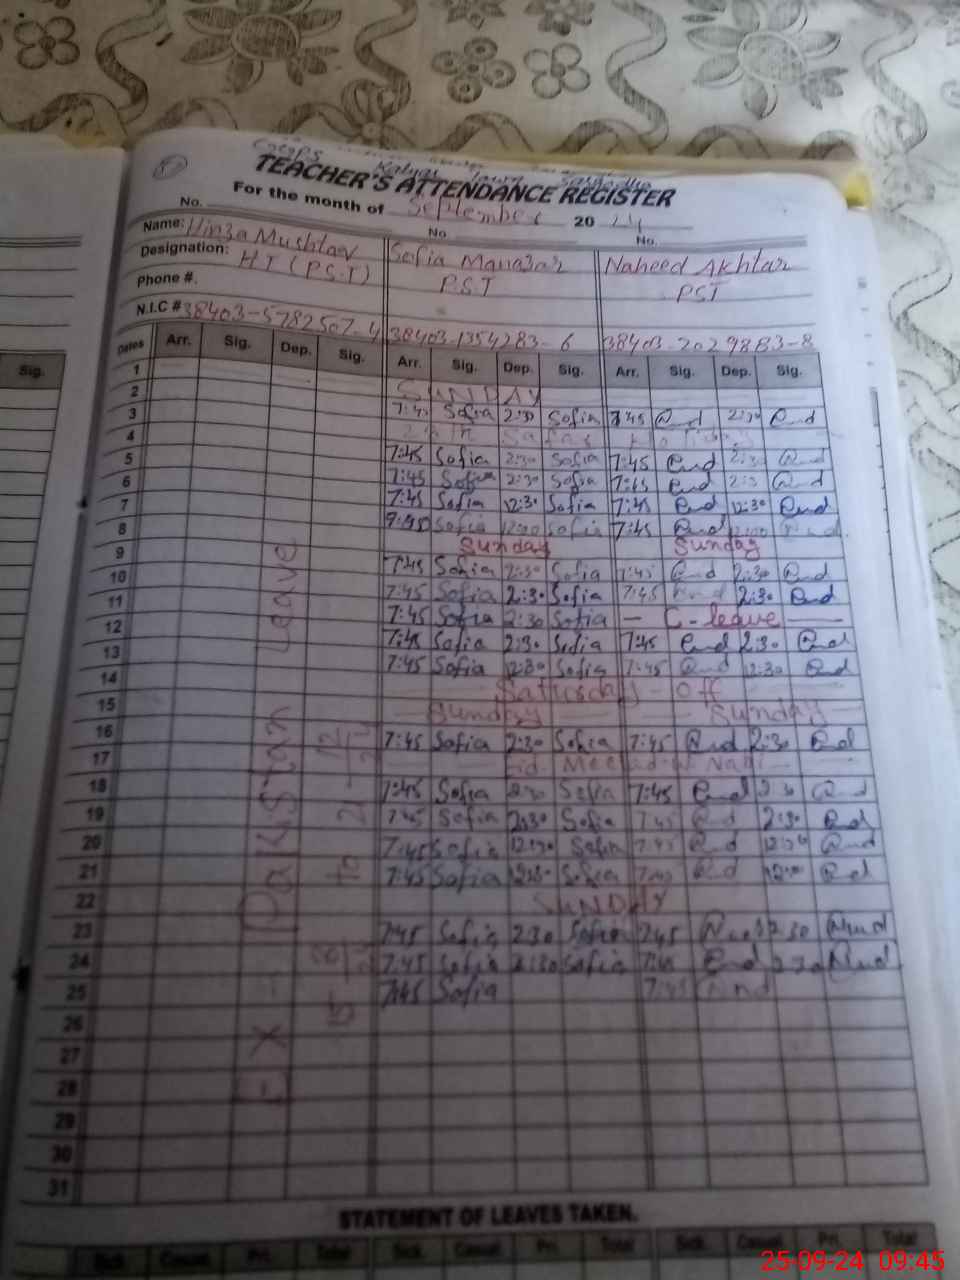 TEACHER'S ATTENDANCE REGISTER
For the month of September 2024
No. No. No.
Name: Hinza Mushtaq Sofia Manazar Naheed Akhtar
Designation: HT (P.S.T) P.S.T PST
Phone #.
N.I.C # 38403-5782507-4 38403-1354283-6 38403-2029883-8
Sig. Dates Arr. Sig. Dep. Sig. Arr. Sig. Dep. Sig. Arr. Sig. Dep. Sig.
1 SUNDAY
2 7:45 Sofia 2:30 Sofia 7:45 2:30
3 Safar Holiday
4 7:45 Sofia 2:30 Sofia 7:45 2:30
5 7:45 Sofia 2:30 Sofia 7:45 2:30
6 7:45 Sofia 12:30 Sofia 7:45 12:30
7 Sofia 12:00 Sofia 7:45 12:00
8 Sunday Sunday
9 7:45 Sofia 2:30 Sofia 7:45 2:30
10 7:45 Sofia 2:30 Sofia 7:45 2:30
11 7:45 Sofia 2:30 Sofia — C-leave —
12 7:45 Sofia 2:30 Sofia 7:45 2:30
13 7:45 Sofia 12:30 Sofia 7:45 12:30
14 Saturday - Off
15 Sunday Sunday
16 7:45 Sofia 2:30 Sofia 7:45 2:30
17 Eid- Nabi
18 7:45 Sofia 2:30 Sofia 7:45 2:30
19 7:45 Sofia 2:30 Sofia 7:45 2:30
20 7:45 Sofia 12:30 Sofia 7:45 12:30
21 7:45 Sofia Sofia 7:45 12:00
22 SUNDAY
23 7:45 Sofia 2:30 Sofia 7:45 2:30
24 7:45 Sofia 2:30 Sofia 7:45 2:30
25 7:45 Sofia 7:45
26
27
28
29
30
31
EX- Pakistan Leave
STATEMENT OF LEAVES TAKEN.
Sick. Casual. Pri. Total Sick. Casual. Pri. Total Sick. Casual. Pri. Total
25-09-24 09:45